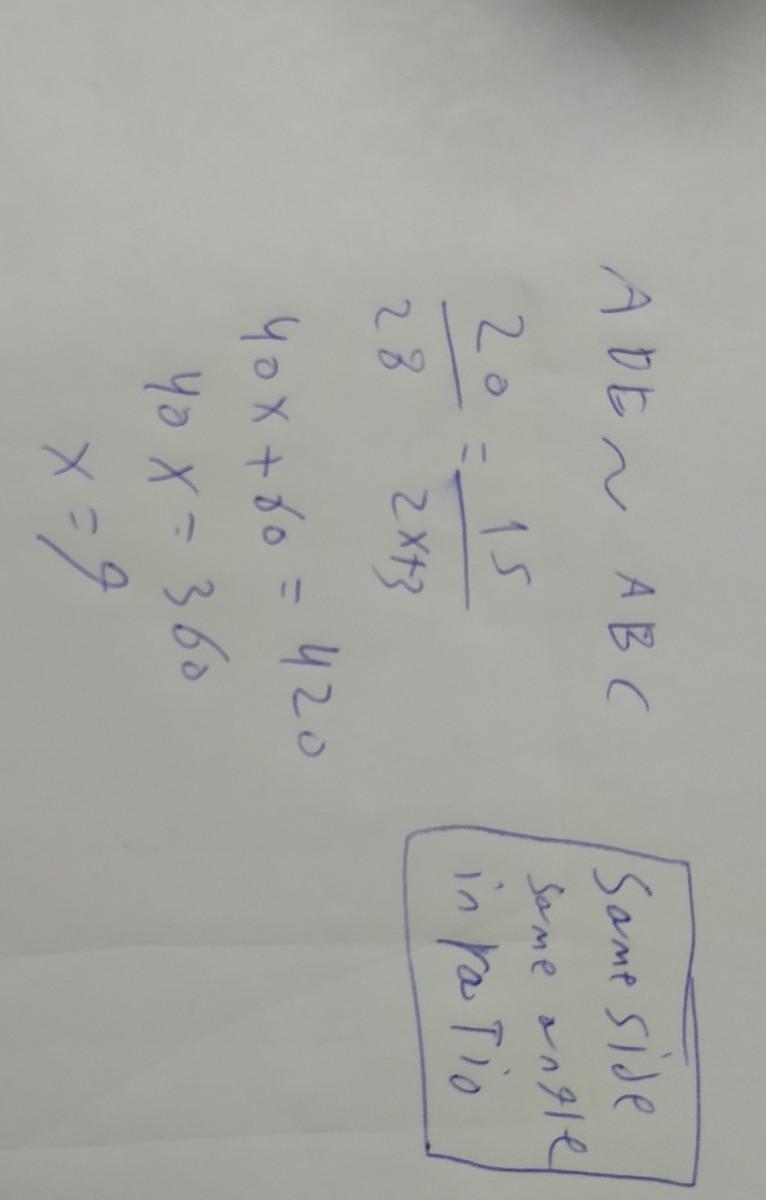 ADE ~ ABC
20/28 = 15/2x+3
40x+60 = 420
40x = 360
x = 9
Same side
same angle
in raTio